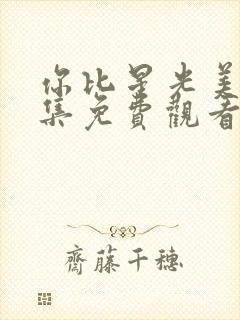 你比星光美
集免費觀看
齋藤千穗